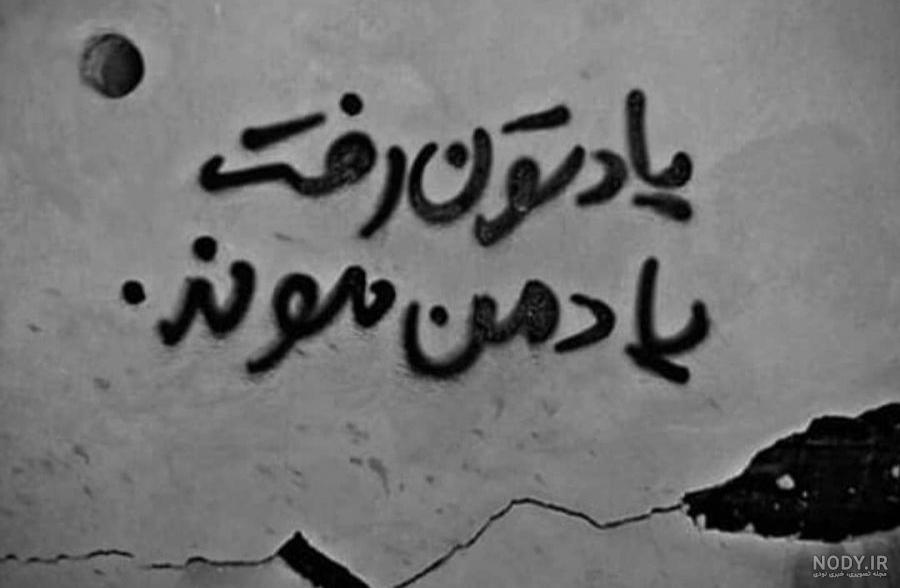 یادتون رفت
یاد من موند.
NODY.IR
مجله تصویری، خبری نودی